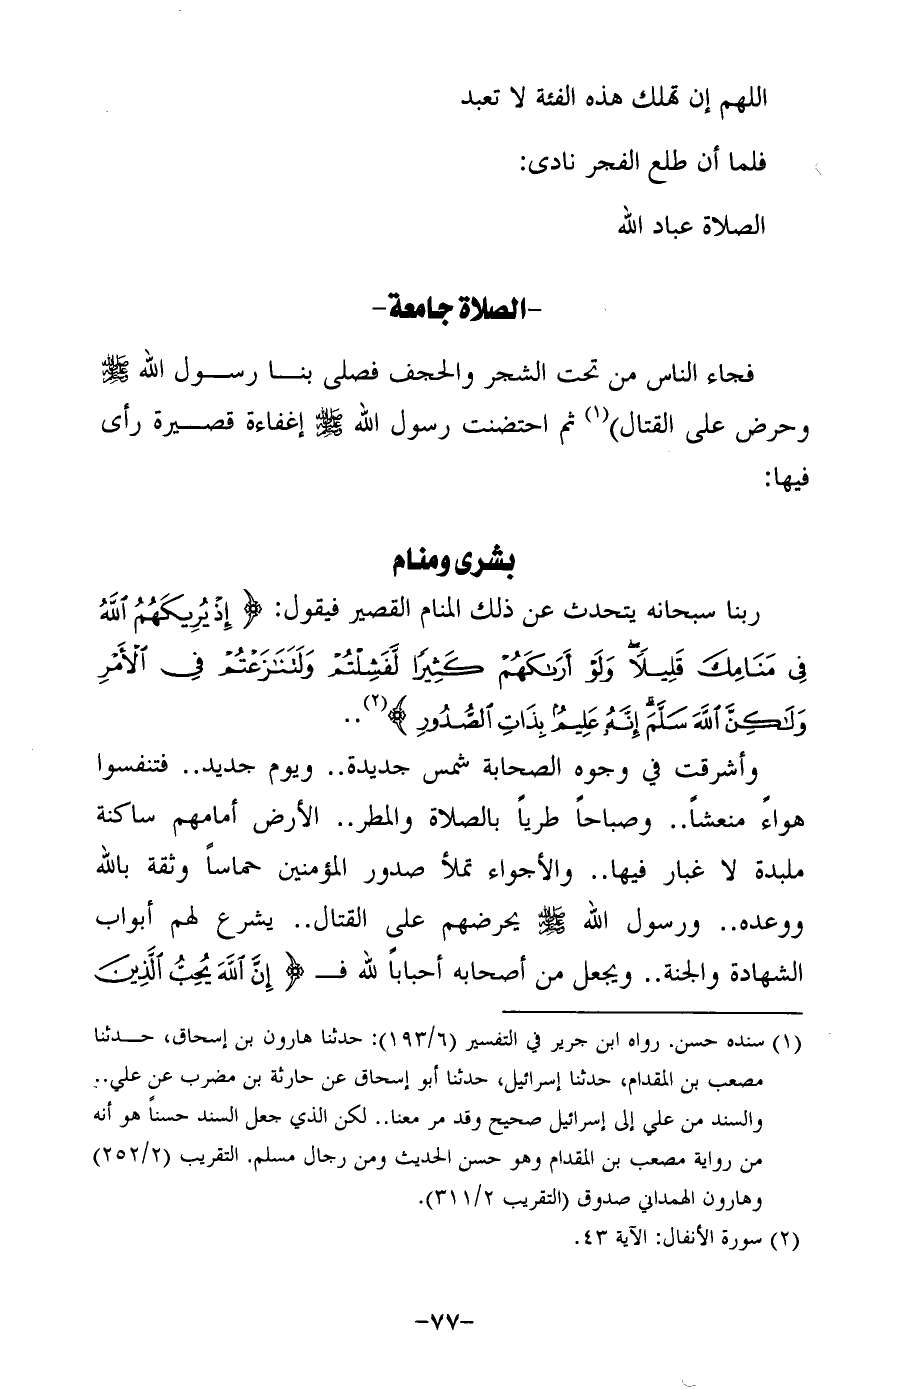 اللهم إن تهلك هذه الفئة لا تعبد
فلما أن طلع الفجر نادى:
الصلاة عباد الله
-الصلاة جامعة-
فجاء الناس من تحت الشجر والحجف فصلى بنا رسول الله ﷺ
وحرض على القتال)(١) ثم احتضنت رسول الله ﷺ إغفاءة قصيرة رأى
فيها:
بشرى ومنام
ربنا سبحانه يتحدث عن ذلك المنام القصير فيقول: ﴿ إِذْ يُرِيكَهُمُ ٱللَّهُ
فِى مَنَامِكَ قَلِيلًا ۖ وَلَوْ أَرَىٰكَهُمْ كَثِيرًا لَّفَشِلْتُمْ وَلَتَنَٰزَعْتُمْ فِى ٱلْأَمْرِ
وَلَٰكِنَّ ٱللَّهَ سَلَّمَ ۗ إِنَّهُۥ عَلِيمٌۢ بِذَاتِ ٱلصُّدُورِ ﴾(٢)..
وأشرقت في وجوه الصحابة شمس جديدة.. ويوم جديد.. فتنفسوا
هواءً منعشاً.. وصباحاً طرياً بالصلاة والمطر.. الأرض أمامهم ساكنة
ملبدة لا غبار فيها.. والأجواء تملأ صدور المؤمنين حماساً وثقة بالله
ووعده.. ورسول الله ﷺ يحرضهم على القتال.. يشرع لهم أبواب
الشهادة والجنة.. ويجعل من أصحابه أحباباً لله فـ ﴿ إِنَّ ٱللَّهَ يُحِبُّ ٱلَّذِينَ
(١) سنده حسن. رواه ابن جرير في التفسير (١٩٣/٦): حدثنا هارون بن إسحاق، حدثنا
مصعب بن المقدام، حدثنا إسرائيل، حدثنا أبو إسحاق عن حارثة بن مضرب عن علي..
والسند من علي إلى إسرائيل صحيح وقد مر معنا.. لكن الذي جعل السند حسناً هو أنه
من رواية مصعب بن المقدام وهو حسن الحديث ومن رجال مسلم. التقريب (٢٥٢/٢)
وهارون الهمداني صدوق (التقريب ٣١١/٢).
(٢) سورة الأنفال: الآية ٤٣.
-٧٧-